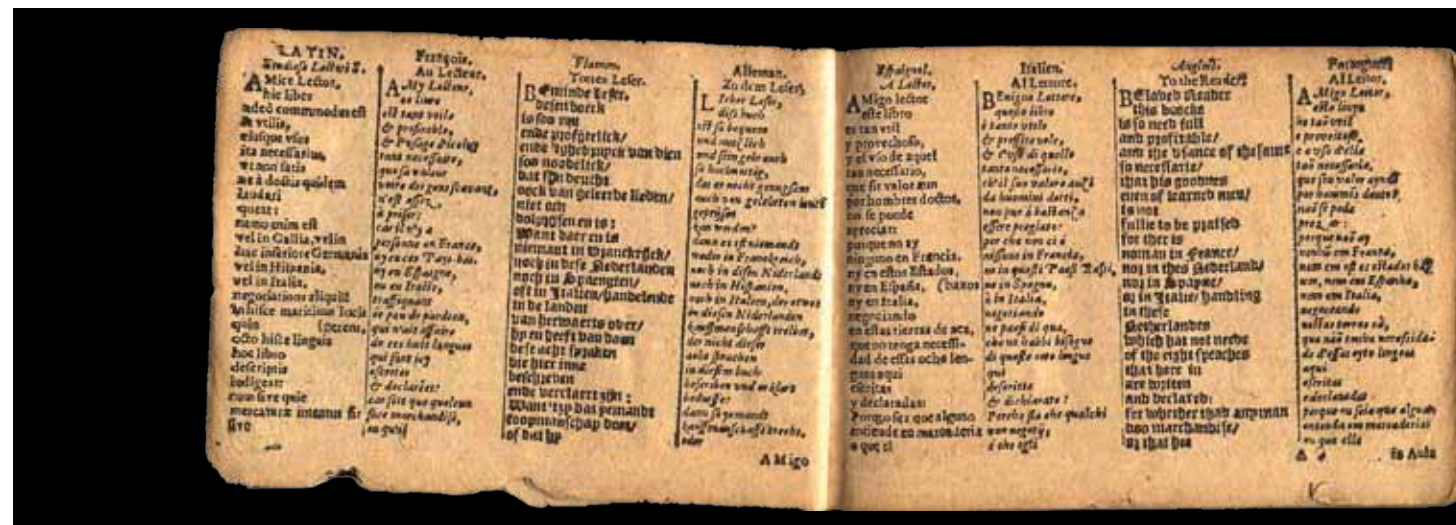 LATIN.
Studioso Lectori S.
AMice Lector,
hic liber
adeò commodus est
& vtilis,
eiúsque vsus
ita necessarius,
vt non satis
ne à doctis quidem
laudari
queat:
nemo enim est
vel in Gallia, vel in
hac inferiore Germania
vel in Hispania,
vel in Italia,
negotiationes aliquid
in hisce maritimis locis
quin (perens,
octo hisce linguis
hoc libro
descriptis
indigeat:
nam sive quis
mercaturæ intentus sit
sive
François.
Au Lecteur.
AMy Lecteur,
ce livre
est tant vtile
& profitable,
& l'vsage d'icelui
tant necessaire,
que sa valeur
voire des gens sçavants,
n'est assez
à priser:
car il n'y a
personne en France,
ny en ces Pays-bas,
ny en Espaigne,
ou en Italie,
traffiquant
és pais de pardeça,
qui n'ait affaire
de ces huit langues
qui sont icy
escrites
& declarées:
car soit que quelcun
face marchandise,
ou qu'il
Flamen.
Totten Leser.
BEminde Leser,
desen boeck
is soo nut
ende profijtelick/
ende t'ghebruyck van dien
soo noodelick/
dat sijn deucht
oock van geleerde lieden/
niet en
volprysen en is:
Want daer en is
niemant in Vranckrijck/
noch in dese Nederlanden
noch in Spaengien/
oft in Italien/handelende
in de landen
van herwaerts over/
hy en heeft van doen
dese acht spraken
die hier inne
beschreven
ende verclaert zijn:
Want 'tzy dat yemandt
coopmanschap doet/
of dat hy
Alleman.
Zu dem Leser.
LIeber Leser,
diß buch
ist so bequem
und nutzlich
und sein gebrauch
so hochnötig,
das er nicht gnugsam
auch von gelehrten leuth
gepriesen
kan werden:
dann es ist niemandt
weder in Franckreich,
noch in disen Niderland
noch in Hispanien,
noch in Italien, der etwas
in diesen Niderlanden
kauffmanschafft treibet,
der nicht dieser
acht sprachen
in diesem buch
beschriben und erklert
bedurffe:
dann so yemandt
kauffmanschafft treibt,
oder
AMigo
Español.
A Lector.
AMigo lector
este libro
es tan vtil
y provechoso,
y el vso de aquel
tan necessario,
que su valor aun
por hombres doctos,
no se puede
apreciar:
porque no ay
ninguno en Francia.
ny en estos Estados,
ny en España, (baxos
ny en Italia,
negociando
en estas tierras de aca,
que no tenga necessi-
dad de essas ocho len-
guas aqui
escritas
y declaradas:
Porque sea que alguno
entiende en marcaderia
o que el
Italien.
Al Lettore.
BEnigno Lettore,
questo libro
è tanto vtile
& profittevole,
& l'vso di quello
tanto necessario,
ch'il suo valore anzi
da huomini dotti,
non può à bastanza
essere pregiato:
per che non ci è
nissuno in Francia,
ne in questi Paesi Bassi,
ne in Spagna,
ò in Italia,
negotiando
ne paesi di qua,
che no habbi bisogno
di queste otto lingue
qui
descritte
& dichiarate:
Perche sia che qualchi
uno negotij,
ò che egli
Anglois.
To the Reader
BEloved Reader
this boocke
is so need full
and profitable/
and the vsance of the same
so necessarie/
that his goodnes
even of learned men/
is not
fullie to be praised
for ther is
noman in France/
nor in thes Nederland/
nor in Spayne/
or in Italie/ handling
in these
Netherlandes
which hat not neede
of the eight speaches
that here in
are writen
and declared:
For whether thad anyman
doo marchandise/
or that hee
Portugues.
Al Leitor.
AMigo Leitor,
este livro
he taõ vtil
e proveitoso,
e o vso d'elle
taõ necessario,
que seu valor aynda
por homems doutos,
naõ se pode
prezar:
porque naõ ay
nenhũ em França,
nem em estes estados bax
nem, nem em Espanha,
nem em Italia,
negoceando
nestas terras cà,
que naõ tenha necessida-
de d'essas oyto lingoas
aqui
escritas
e declaradas
porque ou seia que alguẽ
entenda em marcaderias
ou que elle
A 2 Es Aula